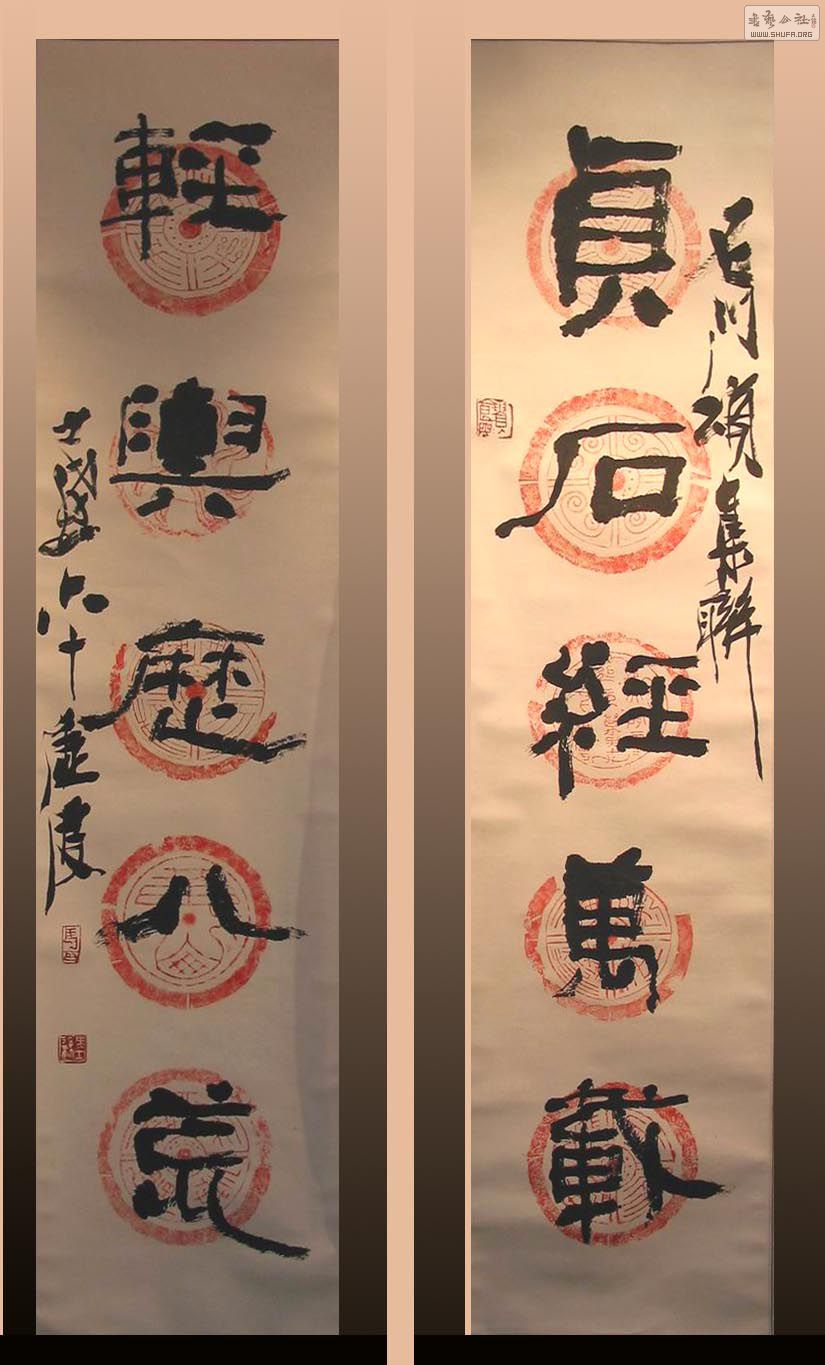 書藝公社
WWW.SHUFA.ORG
石门頌集聯
貞石經萬載
輕輿歷八荒
六十